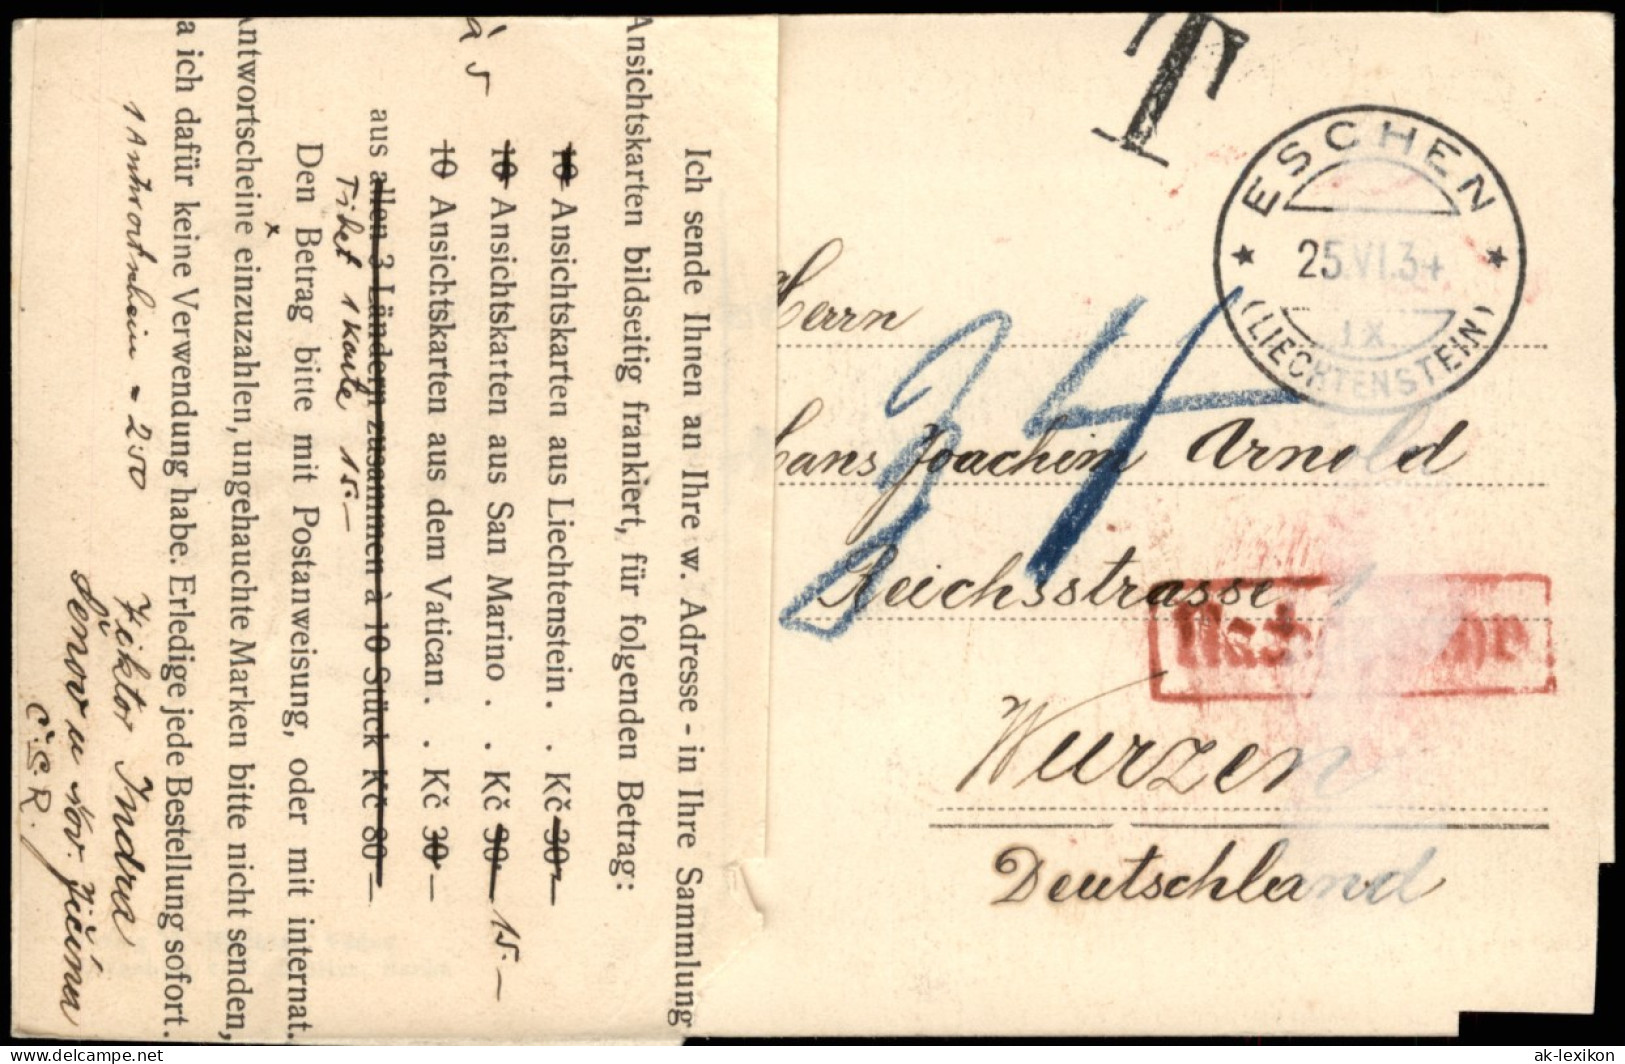 Ich sende Ihnen an Ihre w. Adresse - in Ihre Sammlung
Ansichtskarten bildseitig frankiert, für folgenden Betrag:
à 5
10 Ansichtskarten aus Liechtenstein . . Kč 30 —
10 Ansichtskarten aus San Marino . . Kč 30 — 15.—
10 Ansichtskarten aus dem Vatican . . Kč 30 —
aus allen 3 Ländern zusammen à 10 Stück Kč 80 —
Tibet 1 Karte 15.—
Den Betrag bitte mit Postanweisung, oder mit internat.
Antwortscheine einzuzahlen, ungehauchte Marken bitte nicht senden,
a ich dafür keine Verwendung habe. Erledige jede Bestellung sofort.
1 Antwortschein = 2·50
Viktor Indra
Šenov u Nov. Jičína
Č.S.R.
T
ESCHEN
25.VI.34
IX
(LIECHTENSTEIN)
Herrn
34
Hans Joachim Arnold
Reichsstrasse
Wurzen
Deutschland
delcampe.net
ak-lexikon